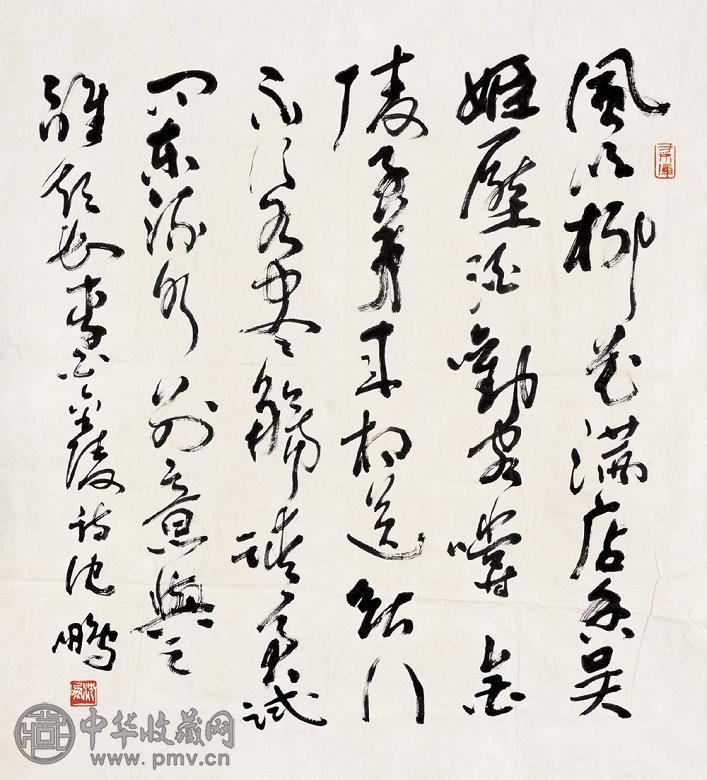 風吹柳花满店香吴
姬壓酒勸客嚐金
陵子弟来相送欲行
不行各尽觴請君試
问東流水别意與之
誰短長李白金陵诗沈鵬
中华收藏网
www.pmv.cn